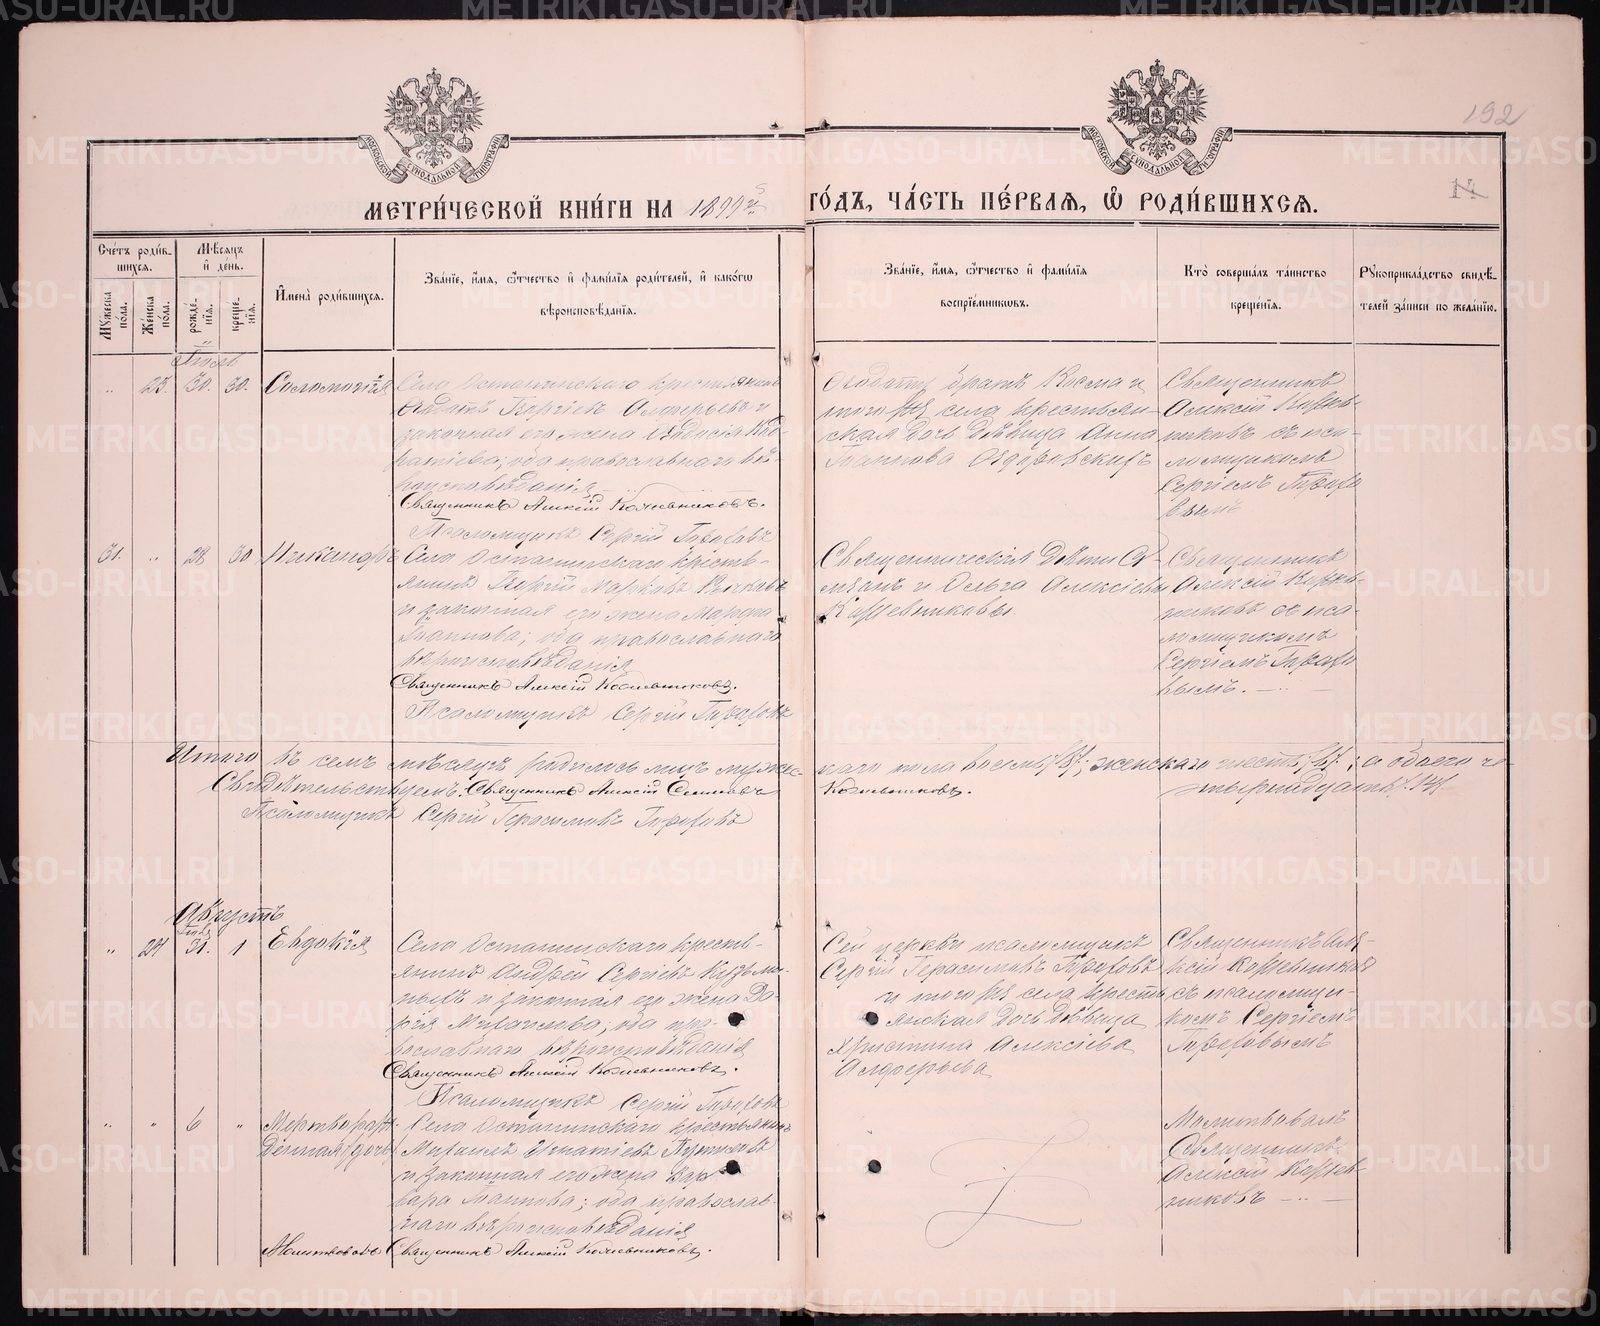 192
МЕТРИ́ЧЕСКОЙ КНИ́ГИ НА 1899 й ГО́ДЪ, ЧА́СТЬ ПЕ́РВАЯ, Ѡ҆ РОДИ́ВШИХСЯ.
Сче́тъ роди́в-
шихся.
Му́жеска по́ла.
Же́нска по́ла.
Мѣ́сяцъ
и҆ де́нь.
рожде́-
нїя.
креще́-
нїя.
И҆мена̀ роди́вшихся.
Зва́нїе, и҆́мя, ѻ҆́тчество и҆ фами́лїя роди́телей, и҆ како́гѡ
вѣроисповѣ́данїя.
Зва́нїе, и҆́мя, ѻ҆́тчество и҆ фами́лїя
воспрїе́мниковъ.
Кто̀ соверша́лъ та́инство
креще́нїя.
Рꙋкоприкла́дство свидѣ́-
телей за́писи по жела́нїю.
Іюль
23. 30. 30. Соломонія
Село Останинскаго крестьянинъ
Ѳедотъ Георгіевъ Алферьевъ и
законная его жена Ѳеодосія
оба православнаго вѣ-
роисповѣданія
Священникъ Алексій Кожевниковъ.
Псаломщикъ Сергій
братъ Косма и
того же села крестьян-
ская дочь дѣвица Анна
Іоаннова
Священникъ
Алексій Кожев-
никовъ съ пса-
ломщикомъ
Сергіемъ
31. " 28 30 Никаноръ
Село Останинскаго кресть-
янинъ Георгій Марковъ
и законная его жена Марфа
Іоаннова; оба православнаго
вѣроисповѣданія
Священникъ Алексій Кожевниковъ.
Псаломщикъ Сергій
Священническія дѣти
и Ольга Алексіевы
Кожевниковы
Священникъ
Алексій Кожев-
никовъ съ пса-
ломщикомъ
Сергіемъ
вымъ.
Итого въ семъ мѣсяцѣ родилось муж. мужес-
каго пола восемь /8/; женскаго шесть /6/; а обоего че-
тырнадцать /14/
Свидѣтельствуемъ: Священникъ Алексій Семеновъ
Кожевниковъ.
Псаломщикъ Сергій Герасимовъ
Августъ
Іюль
" 24 31. 1 Евдокія
Село Останинскаго кресть-
янинъ Андрей Сергіевъ Кузьми-
ныхъ и законная его жена Да-
рія Михаилова; оба пра-
вославнаго вѣроисповѣданія
Священникъ Алексій Кожевниковъ.
Псаломщикъ Сергій
Сей церкви псаломщикъ
Сергій Герасимовъ
и того же села кресть-
янская дочь дѣвица
Христина Алексіева
Алферьева
Священникъ Але-
ксій Кожевников
съ псаломщи-
комъ Сергіемъ
" " 6 " Мертворож-
денная /дочь/
Села Останинскаго крестьянинъ
Михаилъ Игнатіевъ
и законная его жена Вар-
вара Іоаннова; оба православ-
наго вѣроисповѣданія
Молитвовалъ Священникъ Алексій Кожевниковъ.
Молитвовалъ
Священникъ
Алексій Кожев-
никовъ